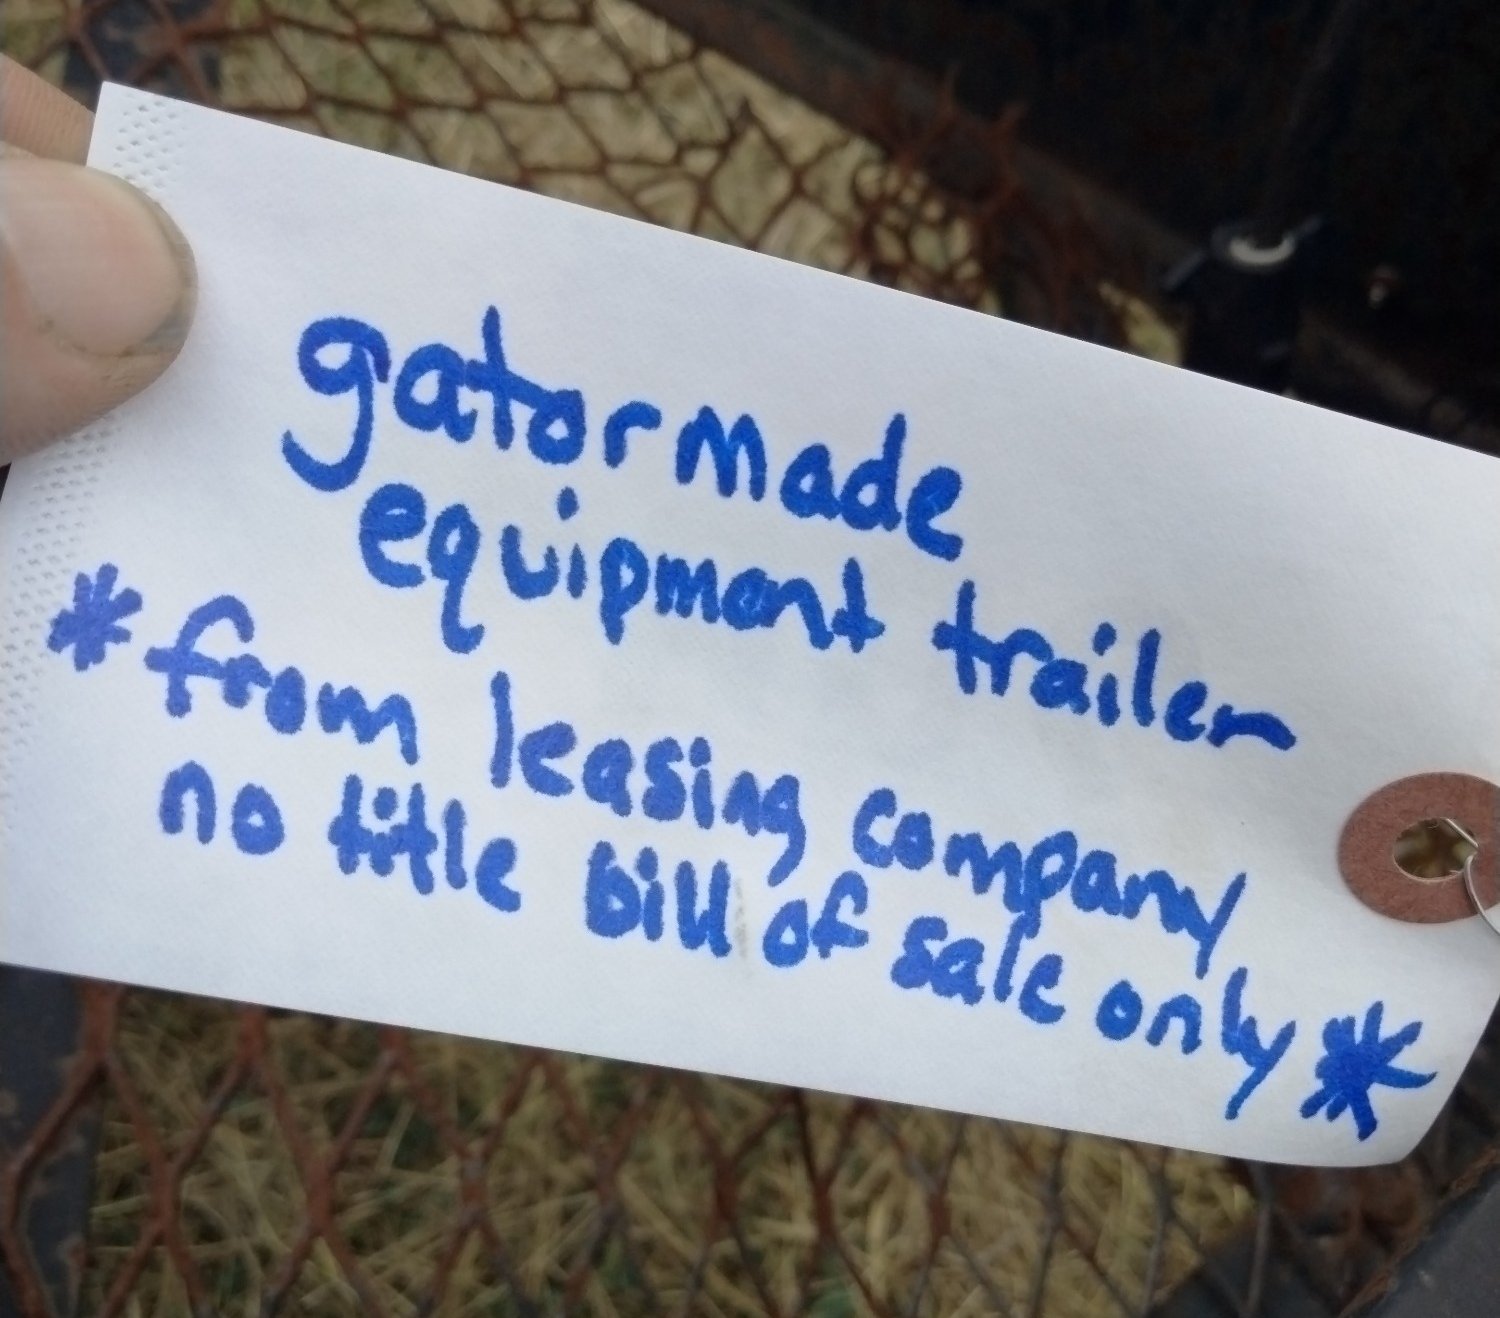 gatormade
equipment trailer
*from leasing company
no title bill of sale only*